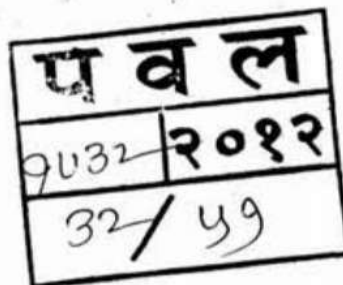 प व ल
१५३२ २०१२
३२/५१